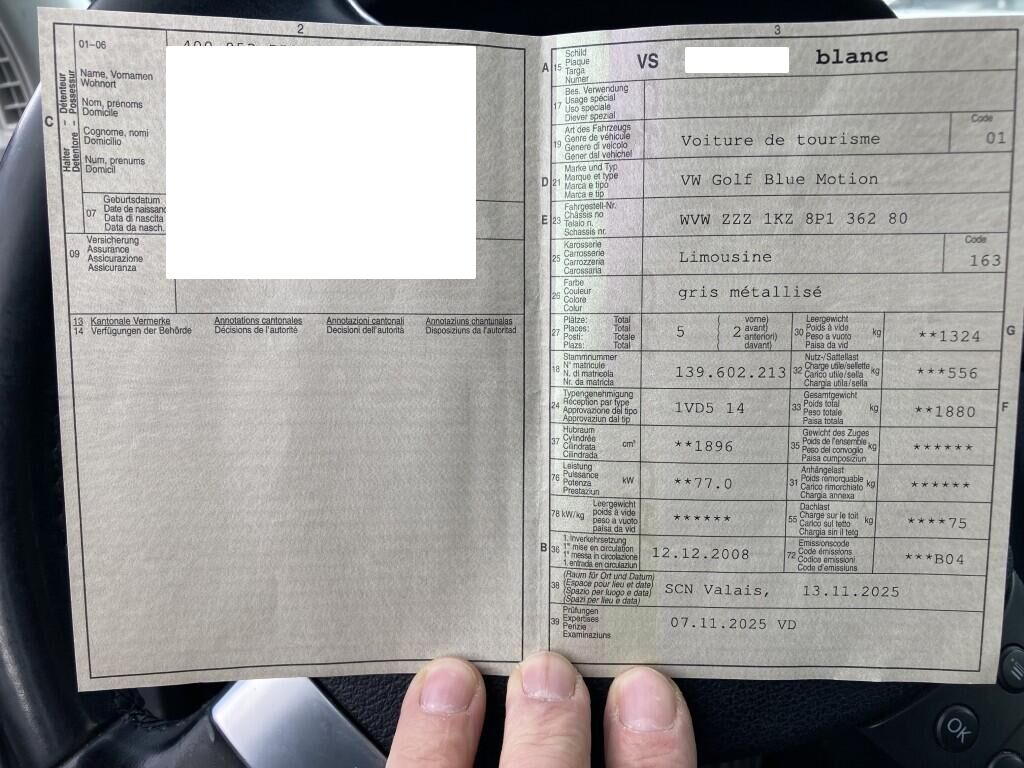 2
01-06
Détenteur – Possessur
Halter – Detentore
C
Name, Vornamen
Wohnort
Nom, prénoms
Domicile
Cognome, nomi
Domicilio
Num, prenums
Domicil
07
Geburtsdatum
Date de naissanc
Data di nascita
Data da nasch.
09
Versicherung
Assurance
Assicurazione
Assicuranza
13 Kantonale Vermerke Annotations cantonales Annotazioni cantonali Annotaziuns chantunalas
14 Verfügungen der Behörde Décisions de l'autorité Decisioni dell'autorità Disposiziuns da l'autoritad
3
A 15
Schild
Plaque
Targa
Numer
VS blanc
17
Bes. Verwendung
Usage spécial
Uso speciale
Diever spezial
19
Art des Fahrzeugs
Genre de véhicule
Genere di veicolo
Gener dal vehichel
Voiture de tourisme
Code
01
D 21
Marke und Typ
Marque et type
Marca e tipo
Marca e tip
VW Golf Blue Motion
E 23
Fahrgestell-Nr.
Châssis no
Telaio n.
Schassis nr.
WVW ZZZ 1KZ 8P1 362 80
25
Karosserie
Carrosserie
Carrozzeria
Carossaria
Limousine
Code
163
26
Farbe
Couleur
Colore
Colur
gris métallisé
27
Plätze: Total
Places: Total
Posti: Totale
Plazs: Total
5
2
vorne)
avant)
anteriori)
davant)
30
Leergewicht
Poids à vide
Peso a vuoto
Paisa da vid
kg
**1324
G
18
Stammnummer
N° matricule
N. di matricola
Nr. da matricla
139.602.213
32
Nutz-/Sattellast
Charge utile/sellette
Carico utile/sella
Chargia utila/sella
kg
***556
24
Typengenehmigung
Réception par type
Approvazione del tipo
Approvaziun dal tip
1VD5 14
33
Gesamtgewicht
Poids total
Peso totale
Paisa totala
kg
**1880
F
37
Hubraum
Cylindrée
Cilindrata
Cilindrada
cm³
**1896
35
Gewicht des Zuges
Poids de l'ensemble
Peso del convoglio
Paisa cumposiziun
kg
******
76
Leistung
Puissance
Potenza
Prestaziun
kW
**77.0
31
Anhängelast
Poids remorquable
Carico rimorchiato
Chargia annexa
kg
******
78 kW/kg
Leergewicht
poids à vide
peso a vuoto
paisa da vid
******
55
Dachlast
Charge sur le toit
Carico sul tetto
Chargia sin il tetg
kg
****75
B 36
1. Inverkehrsetzung
1re mise en circulation
1a messa in circolazione
1. entrada en circulaziun
12.12.2008
72
Emissionscode
Code émissions
Codice emissioni
Code d'emissiuns
***B04
38
(Raum für Ort und Datum)
(Espace pour lieu et date)
(Spazio per luogo e data)
(Spazi per lieu e data)
SCN Valais, 13.11.2025
39
Prüfungen
Expertises
Perizie
Examinaziuns
07.11.2025 VD
OK